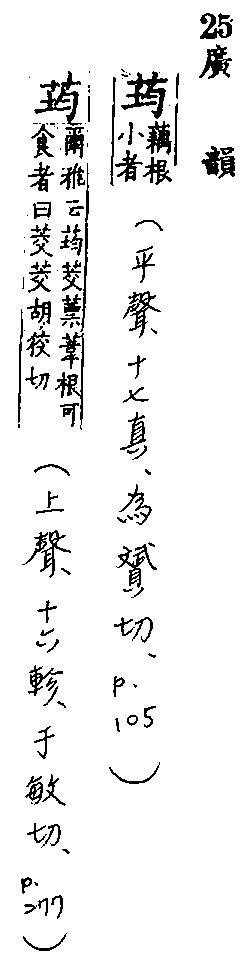 25廣韻
荺藕根小者(平聲、十七真、為贇切、p.105)
荺爾雅云荺茭葉葦根可食者曰茭茭胡狡切(上聲、十六軫、于敏切、p.277)